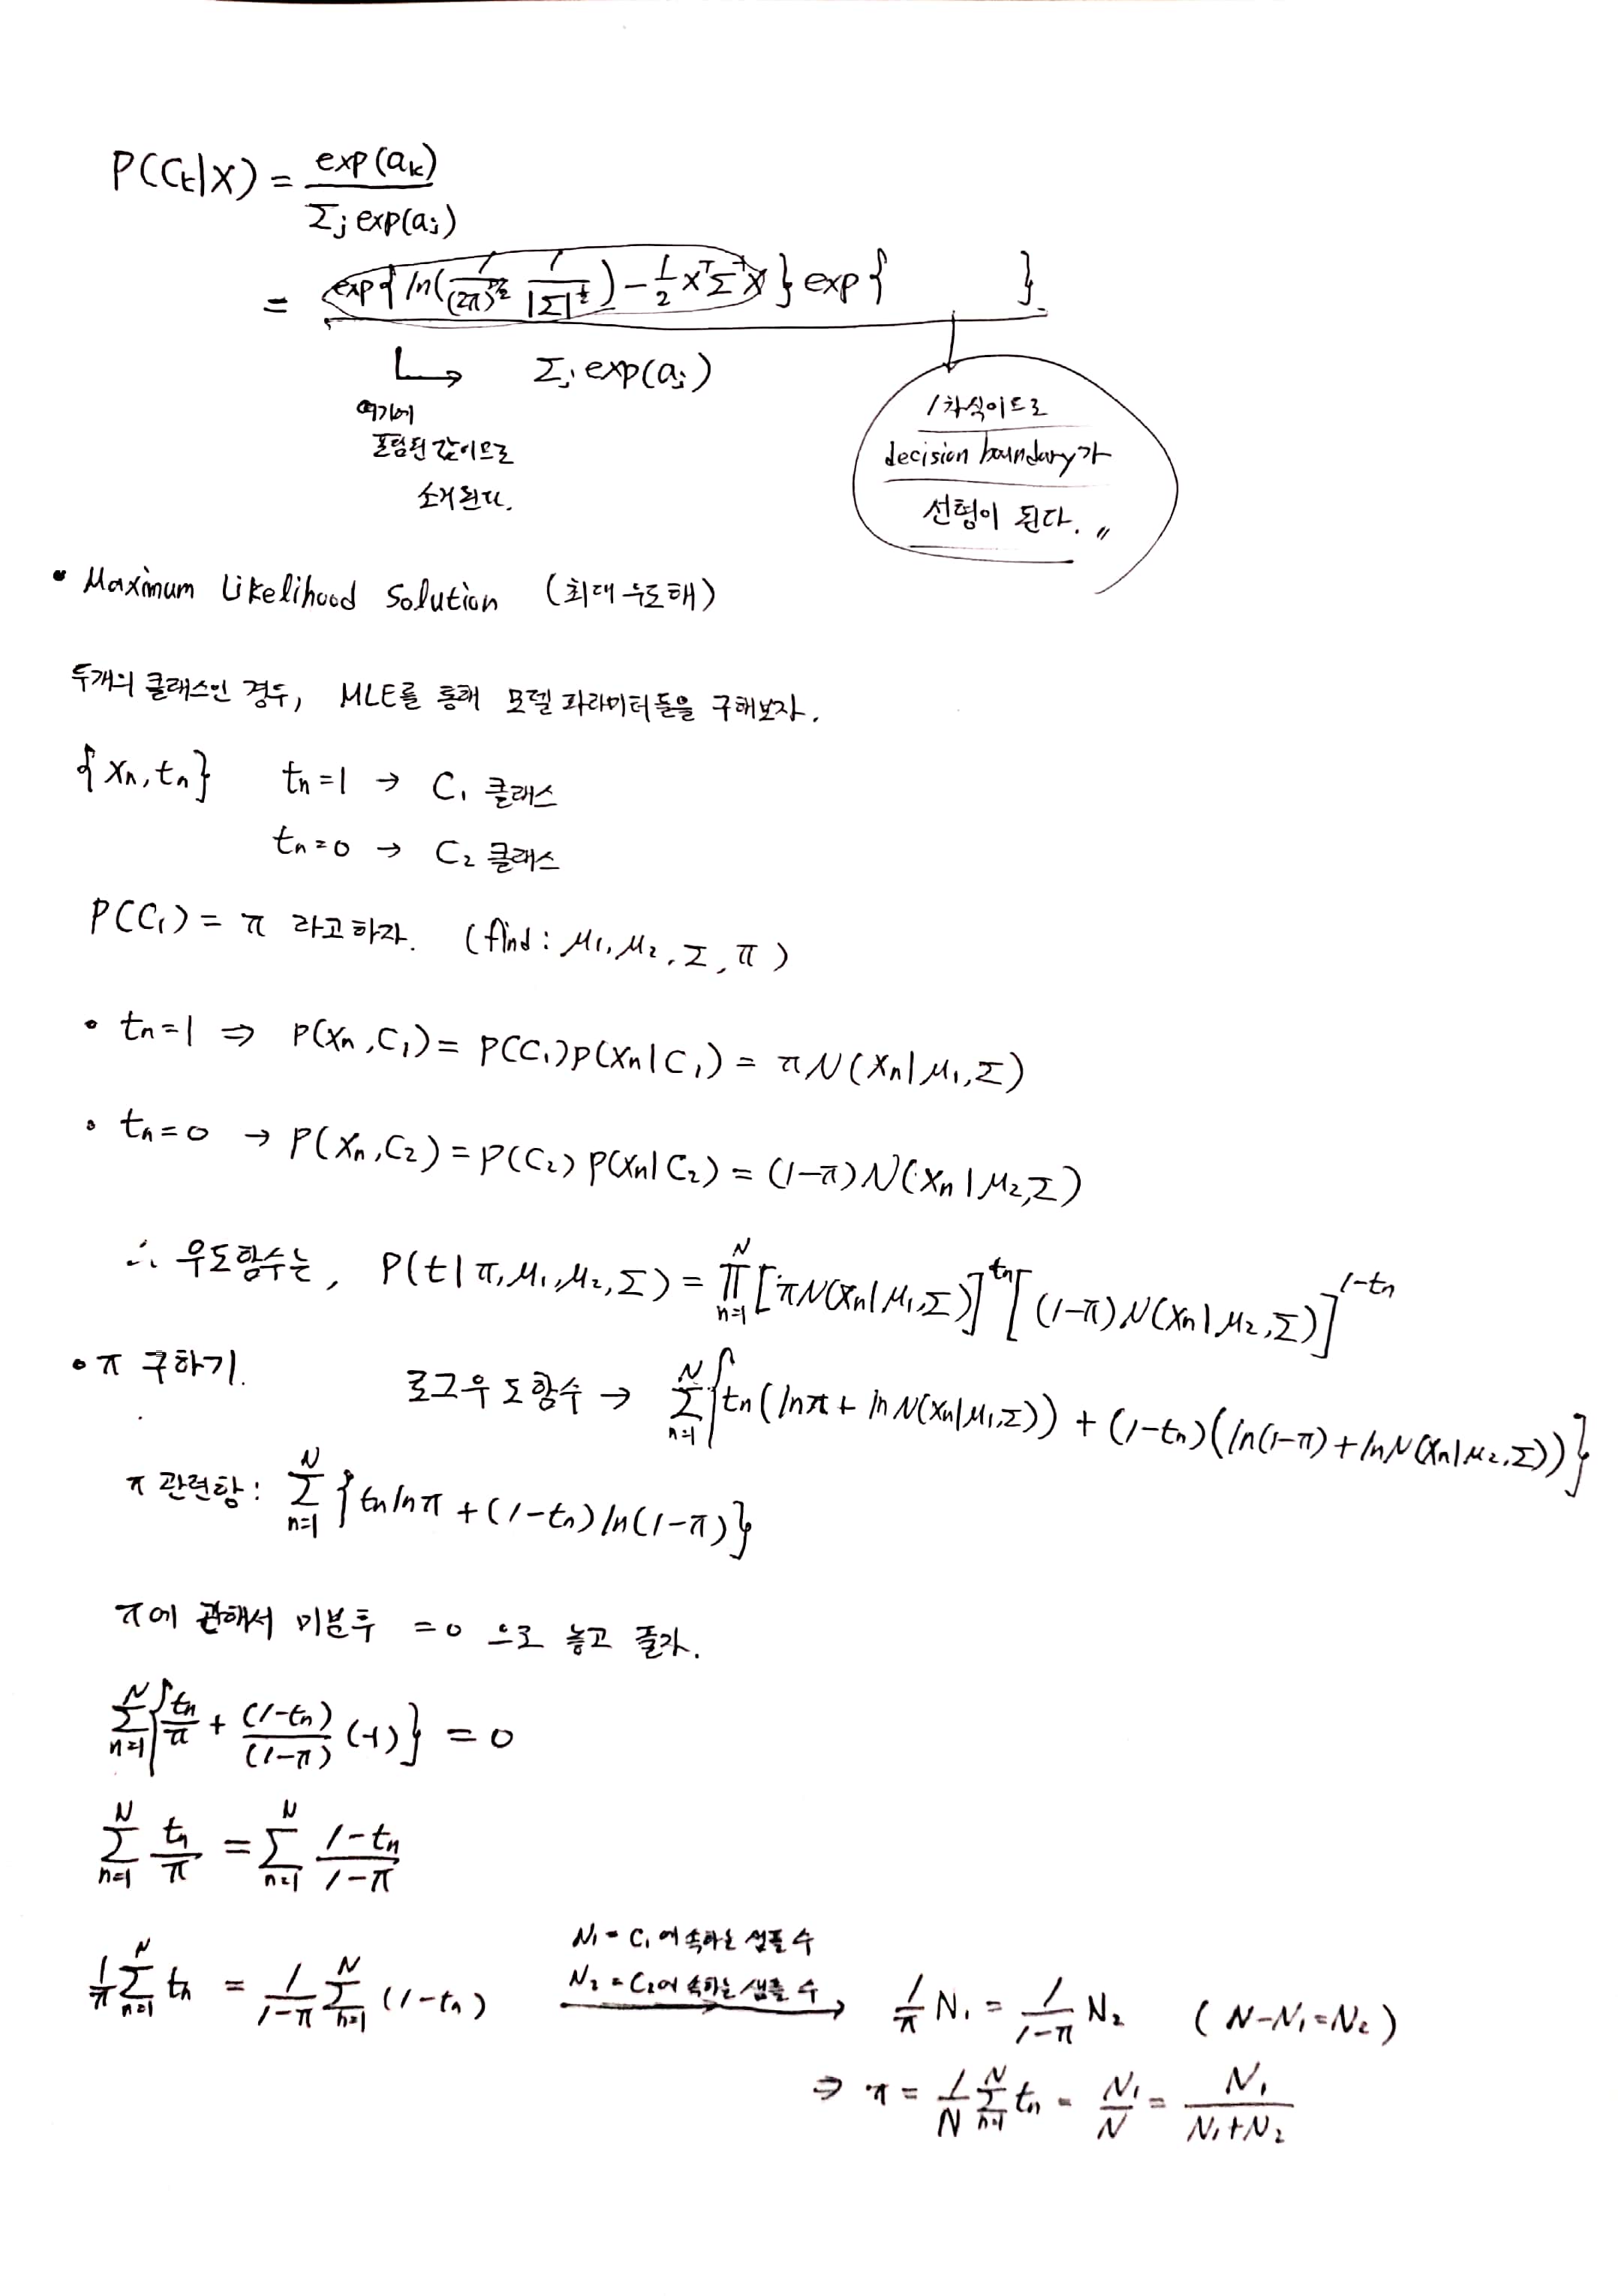 P(Ct|X) = exp(ak) / Σj exp(aj)
= exp{ ln( 1/(2π)^(D/2) 1/|Σ|^(1/2) ) - 1/2 x^T Σ^-1 x } exp{ }
Σj exp(aj)
여기에
포함된 값이므로
소거된다.
1차식이므로
decision boundary가
선형이 된다. 〃
• Maximum Likelihood Solution (최대우도해)
두개의 클래스인 경우, MLE를 통해 모델 파라미터들을 구해보자.
{xn, tn} tn=1 → C1 클래스
tn=0 → C2 클래스
P(C1) = π 라고하자. (find : μ1, μ2, Σ, π)
• tn=1 ⇒ P(xn, C1) = P(C1)p(xn|C1) = πN(xn|μ1, Σ)
• tn=0 → P(xn, C2) = P(C2)p(xn|C2) = (1-π)N(xn|μ2, Σ)
∴ 우도함수는, P(t|π, μ1, μ2, Σ) = ∏_{n=1}^{N} [πN(xn|μ1, Σ)]^{tn} [(1-π)N(xn|μ2, Σ)]^{1-tn}
• π 구하기.
로그우도함수 → Σ_{n=1}^{N} {tn(lnπ + lnN(xn|μ1, Σ)) + (1-tn)(ln(1-π) + lnN(xn|μ2, Σ))}
π 관련항 : Σ_{n=1}^{N} {tn lnπ + (1-tn) ln(1-π)}
π에 관해서 미분후 =0 으로 놓고 풀자.
Σ_{n=1}^{N} {tn/π + (1-tn)/(1-π) (-1)} = 0
Σ_{n=1}^{N} tn/π = Σ_{n=1}^{N} (1-tn)/(1-π)
N1 = C1에 속하는 샘플 수
N2 = C2에 속하는 샘플 수
1/π Σ_{n=1}^{N} tn = 1/(1-π) Σ_{n=1}^{N} (1-tn) → 1/π N1 = 1/(1-π) N2 (N-N1=N2)
⇒ π = 1/N Σ_{n=1}^{N} tn = N1/N = N1/(N1+N2)